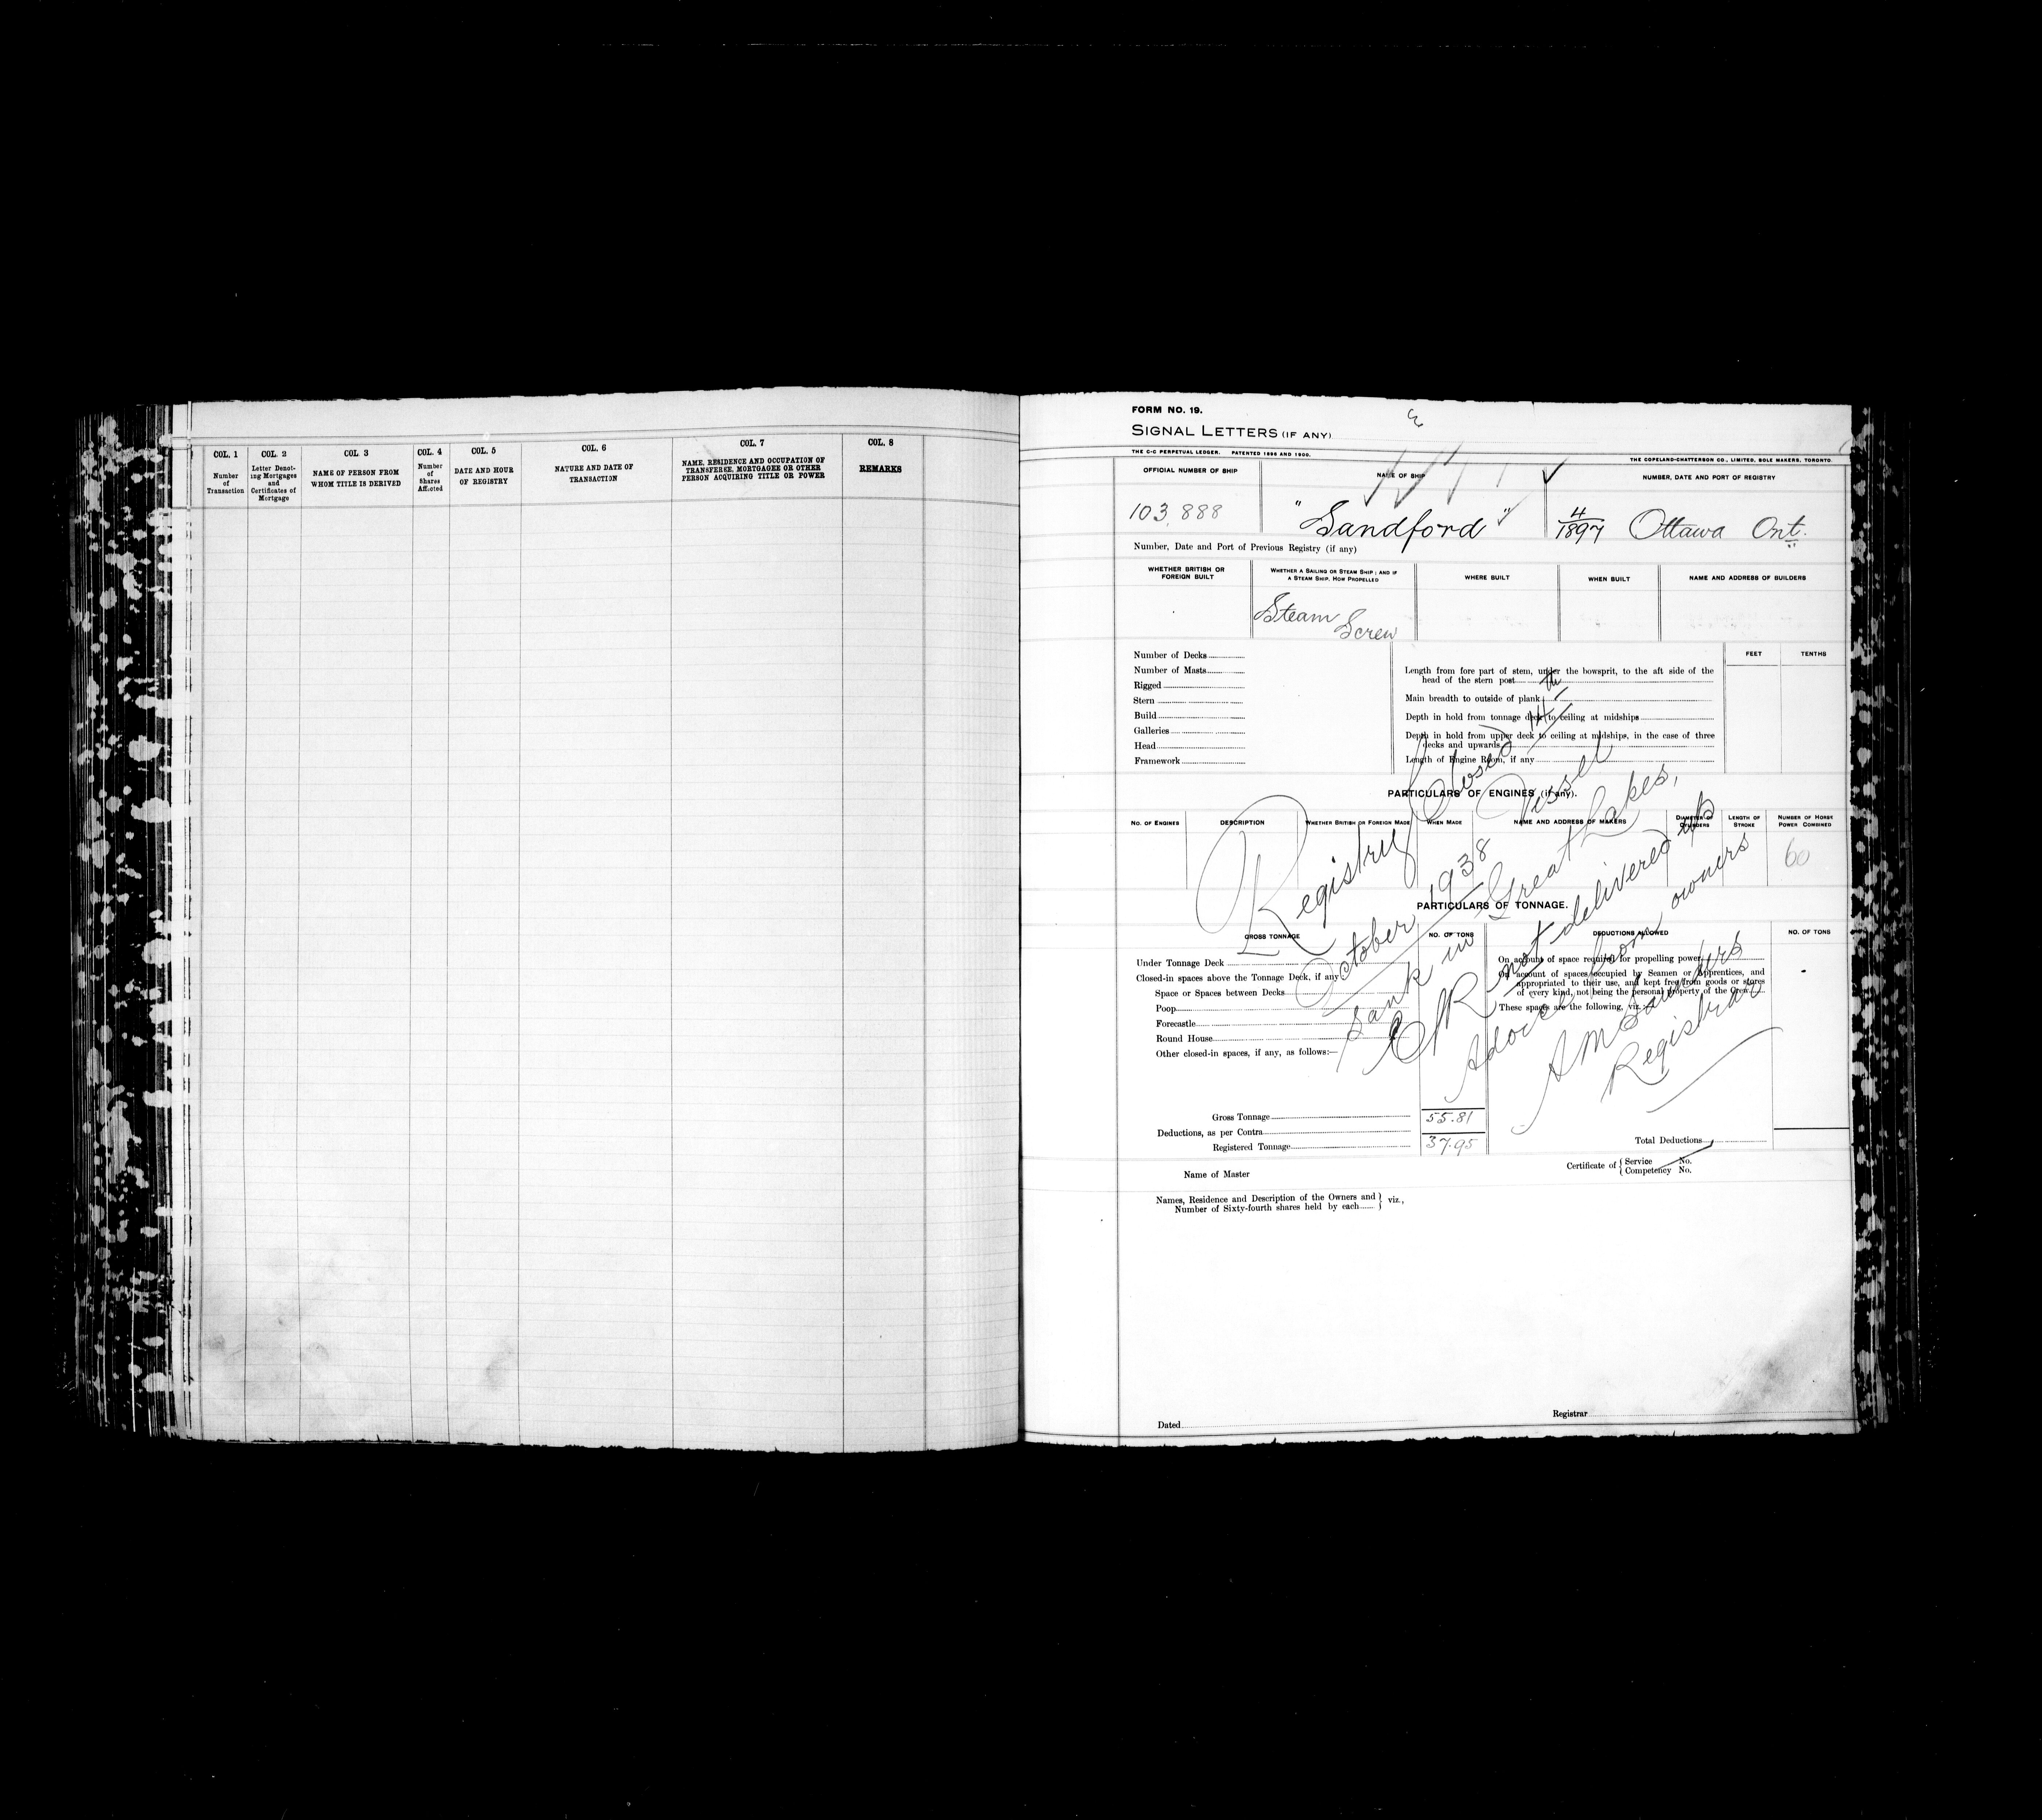 COL. 1
Number
of
Transaction
COL. 2
Letter Denot-
ing Mortgages
and
Certificates of
Mortgage
COL. 3
NAME OF PERSON FROM
WHOM TITLE IS DERIVED
COL. 4
Number
of
Shares
Affected
COL. 5
DATE AND HOUR
OF REGISTRY
COL. 6
NATURE AND DATE OF
TRANSACTION
COL. 7
NAME, RESIDENCE AND OCCUPATION OF
TRANSFEREE, MORTGAGEE OR OTHER
PERSON ACQUIRING TITLE OR POWER
COL. 8
REMARKS
FORM NO. 19.
SIGNAL LETTERS (IF ANY)
THE C-C PERPETUAL LEDGER. PATENTED 1898 AND 1900.
THE COPELAND-CHATTERSON CO., LIMITED, SOLE MAKERS, TORONTO.
OFFICIAL NUMBER OF SHIP
NAME OF SHIP
NUMBER, DATE AND PORT OF REGISTRY
103,888
"Sandford"
4/1897 Ottawa Ont.
Number, Date and Port of Previous Registry (if any)
WHETHER BRITISH OR
FOREIGN BUILT
WHETHER A SAILING OR STEAM SHIP; AND IF
A STEAM SHIP, HOW PROPELLED
WHERE BUILT
WHEN BUILT
NAME AND ADDRESS OF BUILDERS
Steam
Screw
Number of Decks
Number of Masts
Rigged
Stern
Build
Galleries
Head
Framework
FEET
TENTHS
Length from fore part of stem, under the bowsprit, to the aft side of the
head of the stern post
Main breadth to outside of plank
Depth in hold from tonnage deck to ceiling at midships
Depth in hold from upper deck to ceiling at midships, in the case of three
decks and upwards
Length of Engine Room, if any
PARTICULARS OF ENGINES (if any).
NO. OF ENGINES
DESCRIPTION
WHETHER BRITISH OR FOREIGN MADE
WHEN MADE
NAME AND ADDRESS OF MAKERS
DIAMETER OF
CYLINDERS
LENGTH OF
STROKE
NUMBER OF HORSE
POWER COMBINED
60
Registry Closed 14th
October, 1938 Vessel
Sank in Great Lakes,
C/R not delivered up
Advice from owners
A M Saunders
Registrar
PARTICULARS OF TONNAGE.
GROSS TONNAGE
NO. OF TONS
DEDUCTIONS ALLOWED
NO. OF TONS
Under Tonnage Deck
Closed-in spaces above the Tonnage Deck, if any
Space or Spaces between Decks
Poop
Forecastle
Round House
Other closed-in spaces, if any, as follows:—
On account of space required for propelling power
On account of spaces occupied by Seamen or Apprentices, and
appropriated to their use, and kept free from goods or stores
of every kind, not being the personal property of the Crew
These spaces are the following, viz.:—
Gross Tonnage 55.81
Deductions, as per Contra
Registered Tonnage 37.95
Total Deductions
Name of Master
Certificate of { Service No.
{ Competency No.
Names, Residence and Description of the Owners and } viz.,
Number of Sixty-fourth shares held by each }
Dated
Registrar